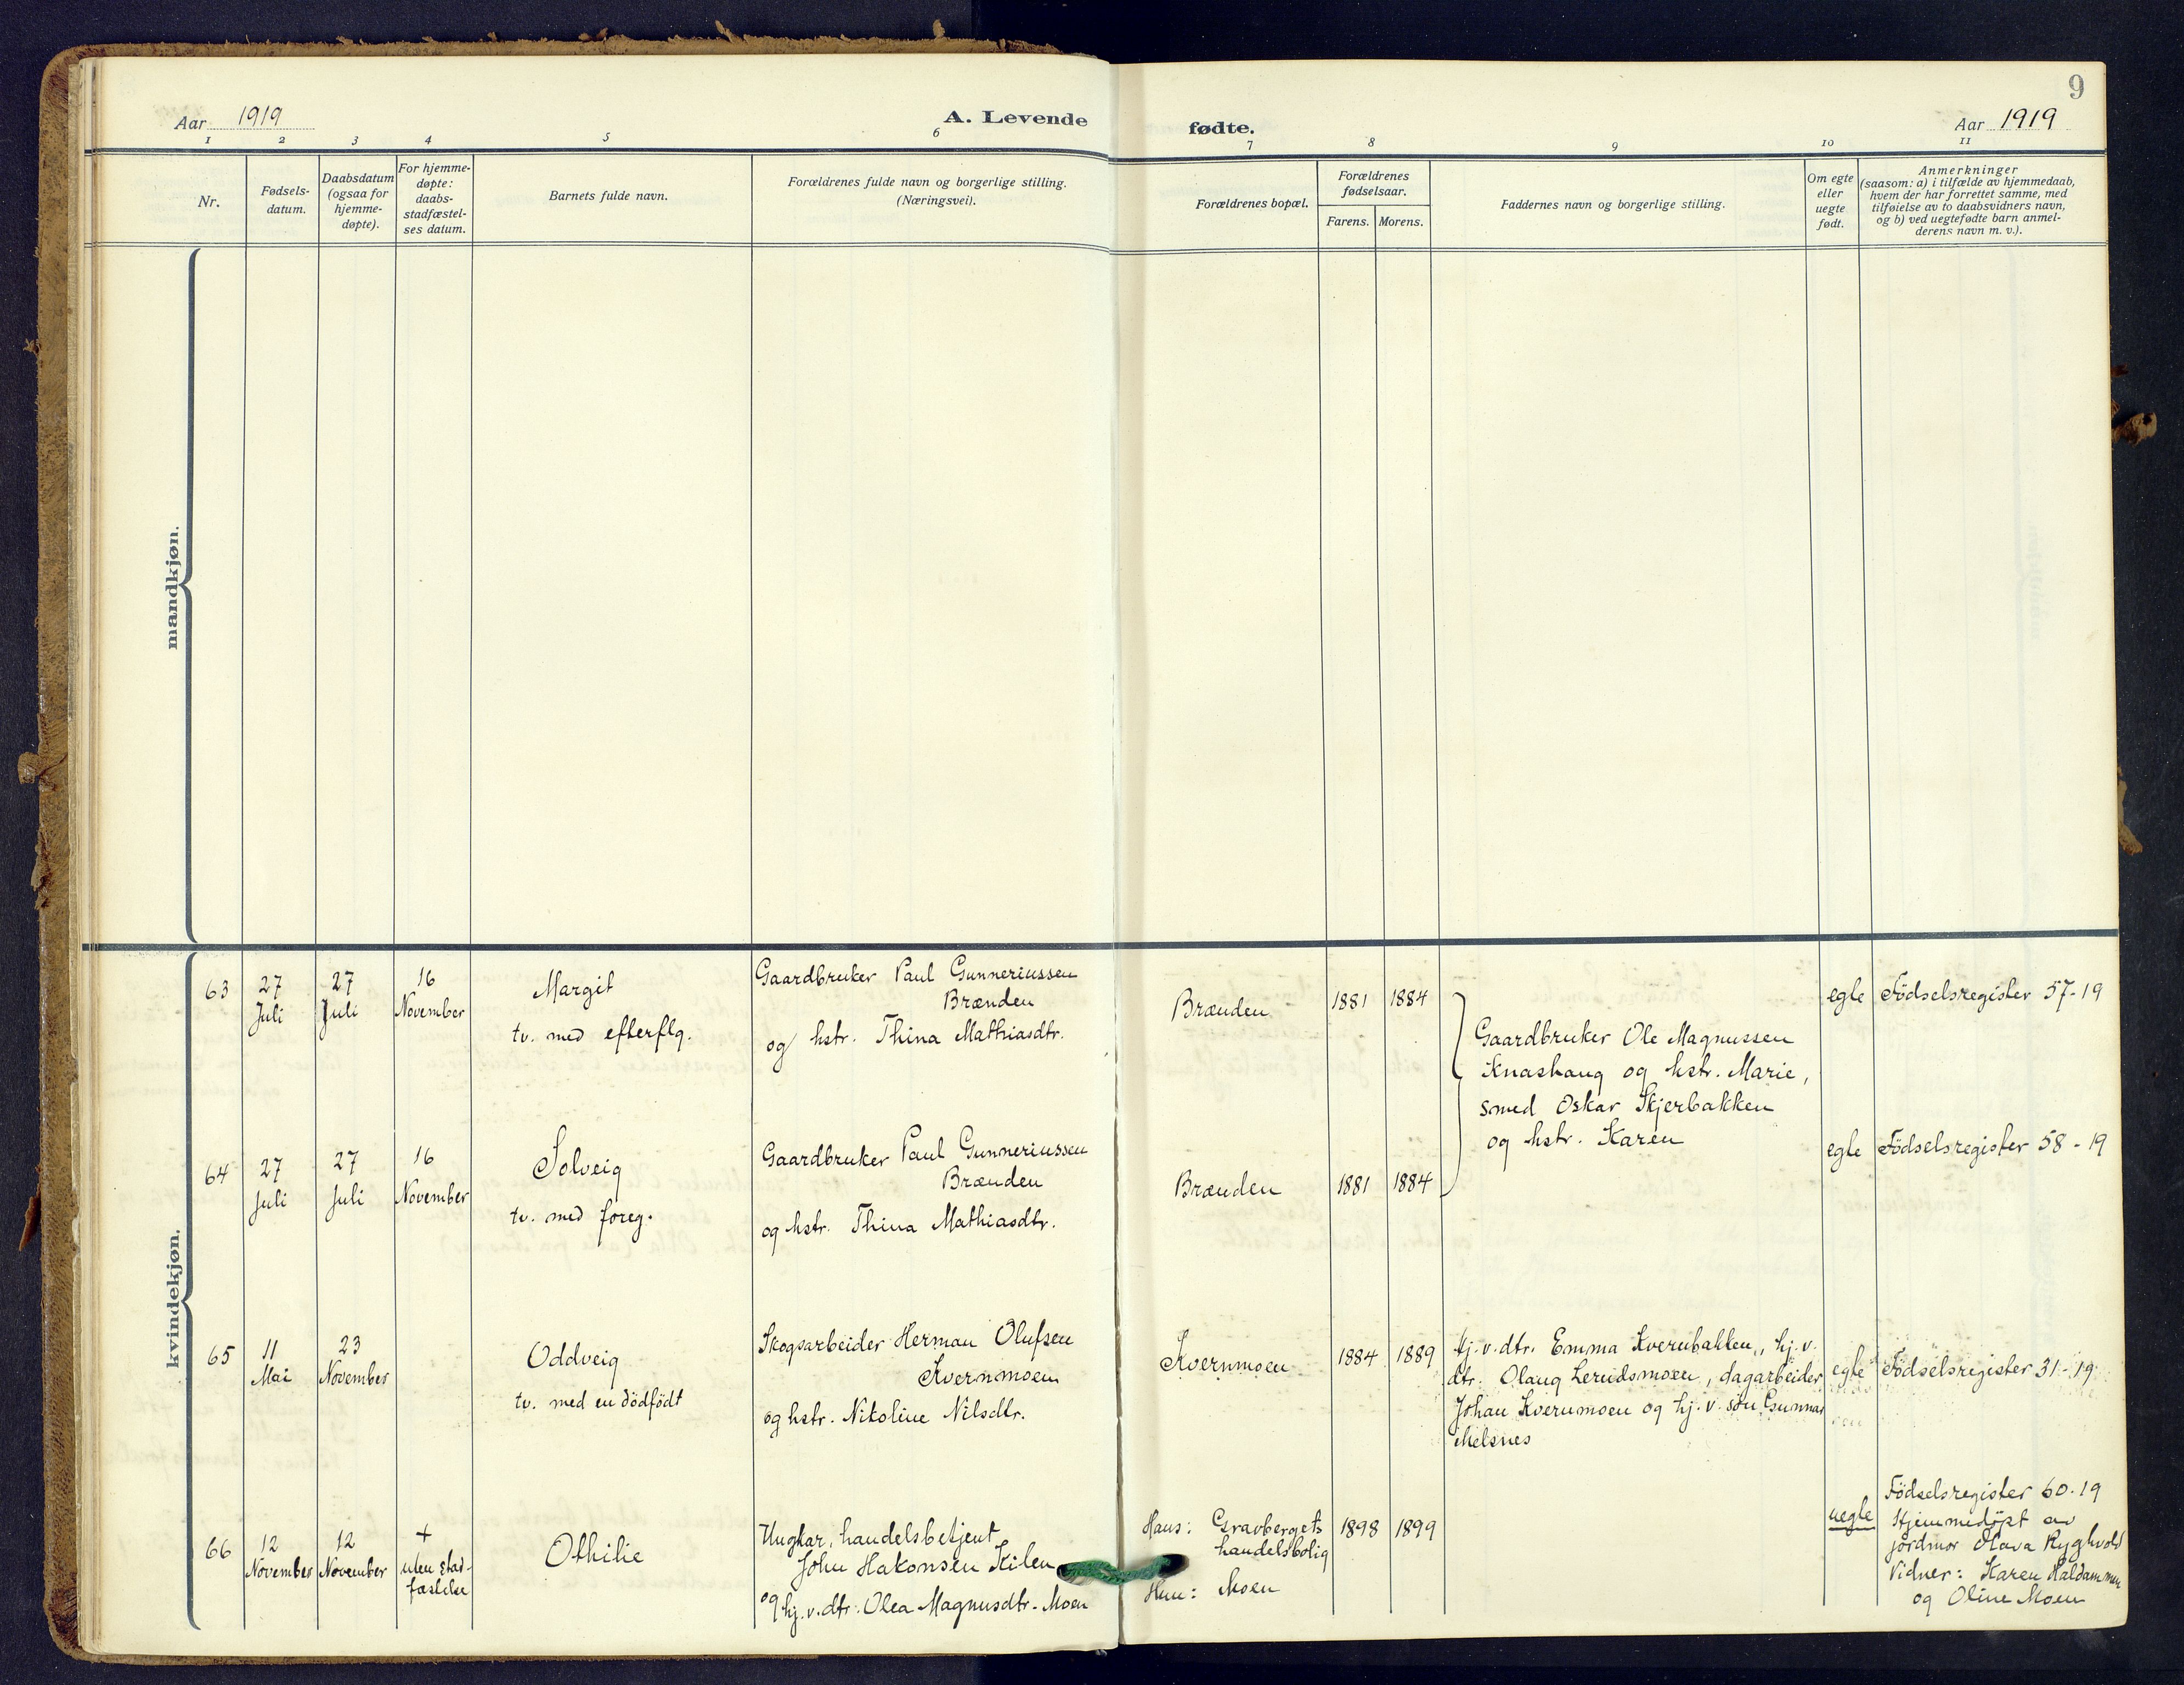 9
Aar 1919
A. Levende
fødte.
Aar 1919
1 2 3 4 5 6 7 8 9 10 11
Nr.
Fødsels-
datum.
Daabsdatum
(ogsaa for
hjemme-
døpte).
For hjemme-
døpte:
daabs-
stadfæstel-
ses datum.
Barnets fulde navn.
Forældrenes fulde navn og borgerlige stilling.
(Næringsvei).
Forældrenes bopæl.
Forældrenes
fødselsaar.
Farens. Morens.
Faddernes navn og borgerlige stilling.
Om egte
eller
uegte
født.
Anmerkninger
(saasom: a) i tilfælde av hjemmedaab,
hvem der har forrettet samme, med
tilføielse av to daabsvidners navn,
og b) ved uegtefødte barn anmel-
derens navn m. v.).
mandkjøn.
kvindekjøn.
63
27
Juli
27
Juli
16
November
Margit
tv. med efterflg.
Gaardbruker Paul Gunneriussen
Brænden
og hstr. Thina Mathiasdtr.
Brænden
1881 1884
Gaardbruker Ole Magnussen
Knashaug og hstr. Marie,
smed Oskar Skjerbakken
og hstr. Karen
egte
Födselsregister 57-19
64
27
Juli
27
Juli
16
November
Solveig
tv. med foreg.
Gaardbruker Paul Gunneriussen
Brænden
og hstr. Thina Mathiasdtr.
Brænden
1881 1884
egte
Födselsregister 58-19
65
11
Mai
23
November
Oddveig
tv. med en dödfödt
Skogsarbeider Herman Olufsen
Kvernmoen
og hstr. Nikoline Nilsdtr.
Kvernmoen
1884 1889
Hj. v. dtr. Emma Kvernbakken, hj. v.
dtr. Olaug Lerudsmoen, dagarbeider
Johan Kvernmoen og hj. v. sön Gunnar
Melsnes
egte
Födselsregister 31-19
66
12
November
12
November
+
uten stad-
fæstelse
Othilie
Ungkar, handelsbetjent
John Hakonsen Kilen
og hj. v. dtr. Olea Magnusdtr. Moen
Hans: Gravbergets
handelsbolig
Hun: Moen
1898 1899
uegte
Födselsregister 60-19
Hjemmedöpt av
jordmor Olava Ryghvold
Vidner: Karen
og Oline Moen